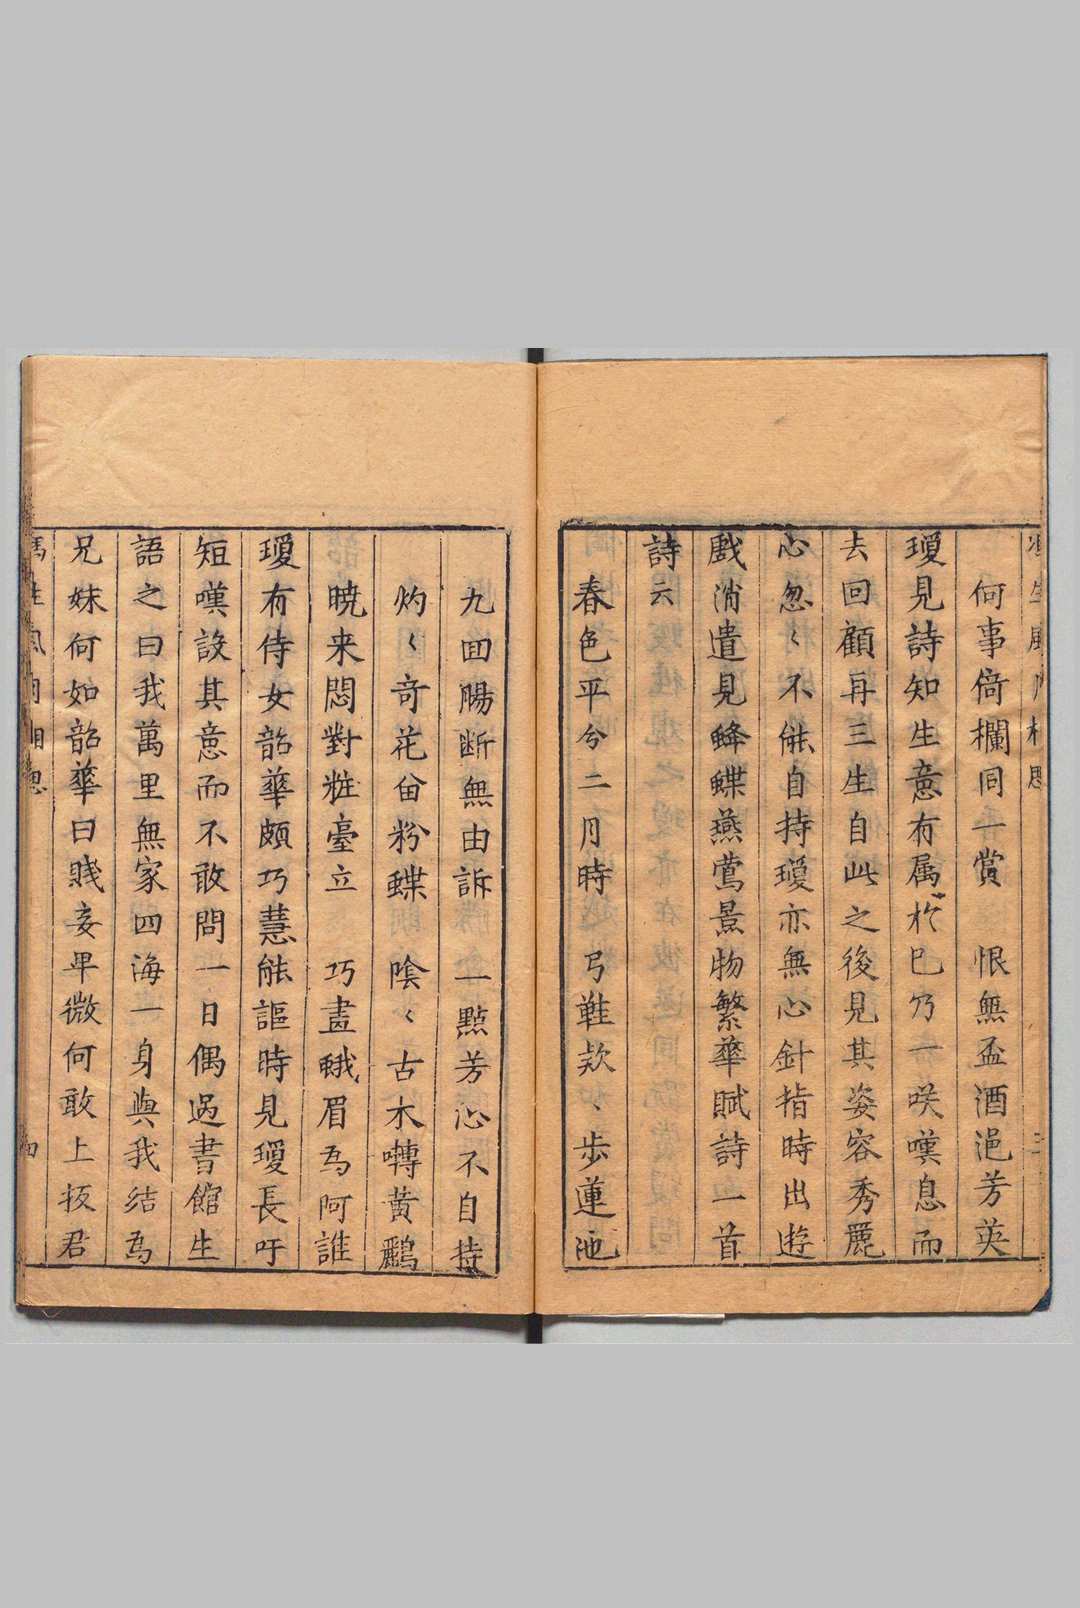 何事倚欄同一賞　恨無盃酒浥芳英
瓊見詩知生意有属於己乃一咲嘆息而
去回顧再三生自此之後見其姿容秀麗
心忽々不能自持瓊亦無心針指時出遊
戲消遣見蜂蝶燕鶯景物繁華賦詩一首
詩云
春色平兮二月時　弓鞋欵々步蓮池
九囬膓断無由訴　一點芳心不自持
灼々竒花畄粉蝶　陰々古木囀黄鸝
曉来悶對粧臺立　巧畫蛾眉為阿誰
瓊有侍女韶華頗巧慧能謳時見瓊長吁
短嘆設其意而不敢問一日偶過書館生
語之曰我萬里無家四海一身與我结為
兄妹何如韶華曰賤妾卑微何敢上扳君
馮生風月相思
四